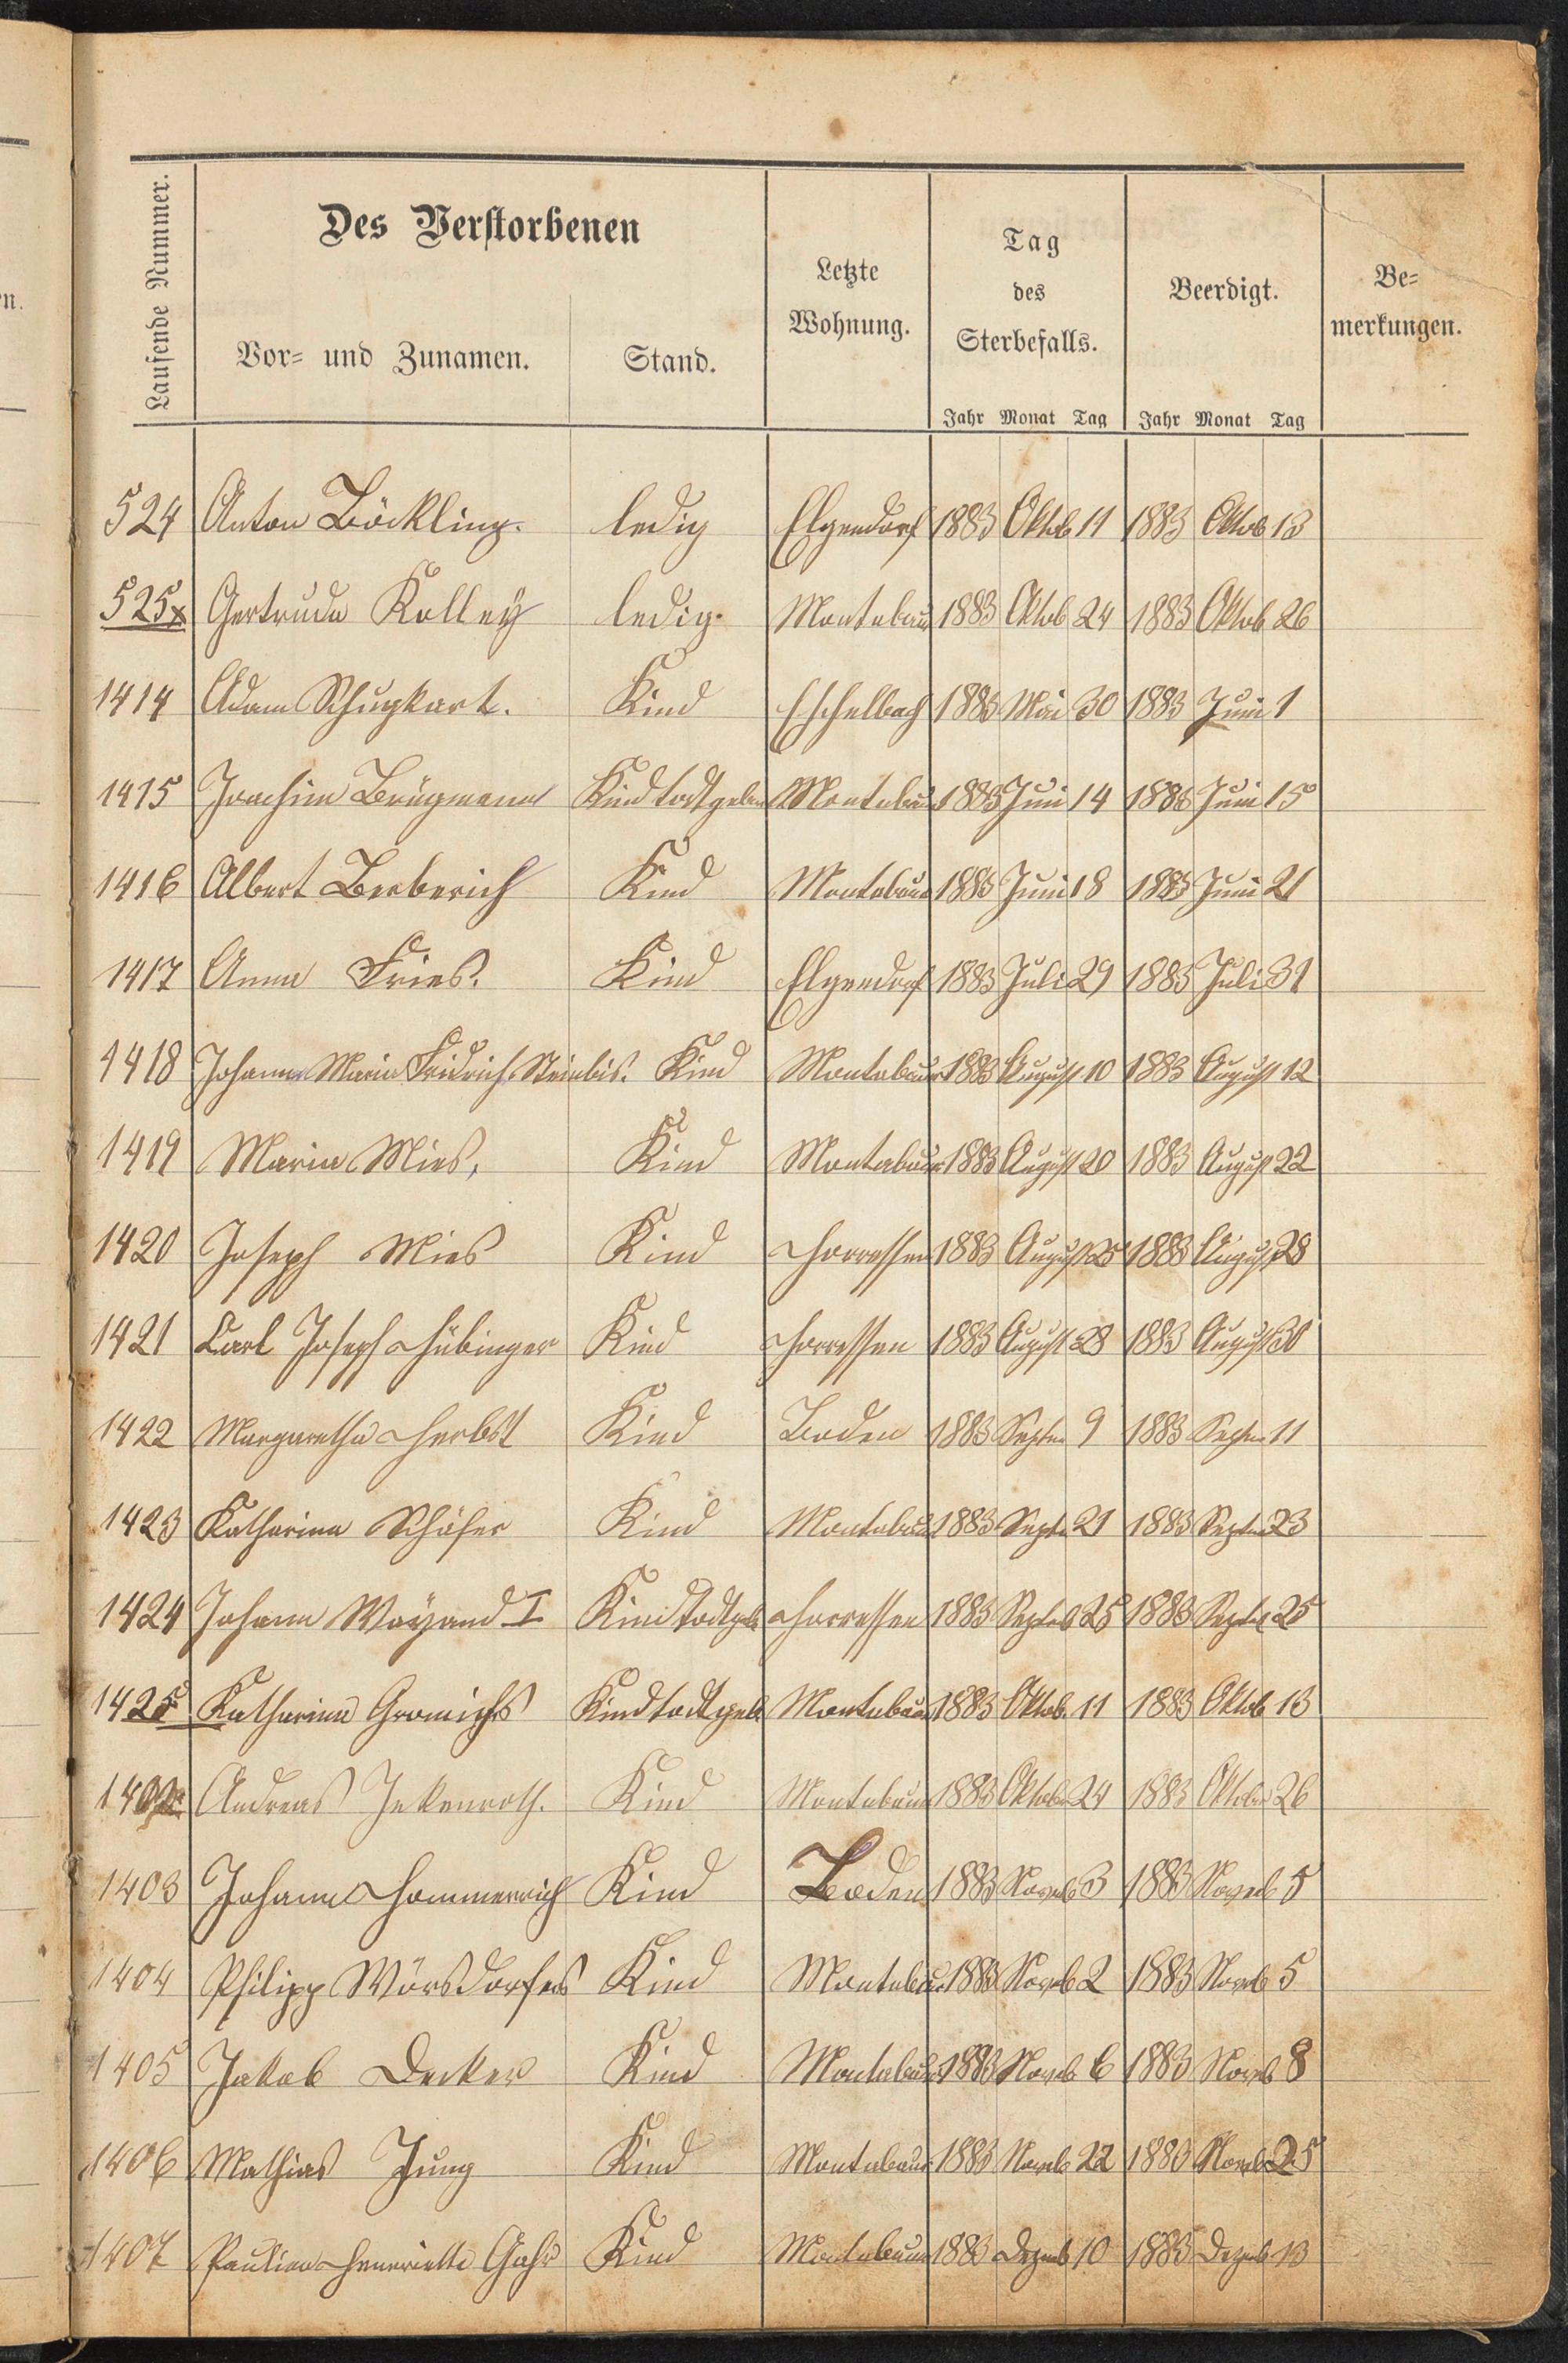 Laufende Nummer.
Des Verstorbenen
Vor- und Zunamen.
Stand.
Letzte
Wohnung.
Tag
des
Sterbefalls.
Beerdigt.
Be-
merkungen.
Jahr Monat Tag Jahr Monat Tag
524 Anton Böckling. ledig Elgendorf 1883 Oktob 11 1883 Oktob 13
525x Gertruda Kolley ledig. Montabaur 1883 Oktob 24 1883 Oktob 26
1414 Adam Schugkart. Kind Eschelbach 1883 Mai 30 1883 Juni 1
1415 Joachim Brügmann Kind todtgeben Montabau 1883 Juni 14 1883 Juni 15
1416 Albert Berberich Kind Montabaur 1883 Juni 18 1883 Juni 21
1417 Anna Fries. Kind Elgendorf 1883 Juli 29 1883 Juli 31
1418 Johanna Maria Fridrich Steinbis. Kind Montabaur 1883 August 10 1883 August 12
1419 Maria Mies, Kind Montabaur 1883 August 20 1883 August 22
1420 Joseph Mies Kind Horressen 1883 August 25 1883 August 28
1421 Carl Joseph Hübinger Kind Horressen 1883 August 28 1883 August 30
1422 Margaretha Herbst Kind Boden 1883 Septem 9 1883 Septem 11
1423 Katharina Schäfer Kind Montabau 1883 Septe 21 1883 Septem 23
1424 Johann Wayand I Kind todtgeb Horressen 1883 Septeb 25 1883 Septeb 25
1425 Katharina Kind todtgeb Montabaur 1883 Oktob. 11 1883 Oktob 13
Andreas Jekenroth. Kind Montabaur 1883 Oktober 24 1883 Oktober 26
1403 Johann Hommerich Kind Boden 1883 Noveb 3 1883 Noveb 5
1404 Philipp Wörsdorfer Kind Montabaur 1883 Noveb 2 1883 Noveb 5
1405 Jakob Decker Kind Montabaur 1883 Noveb 6 1883 Noveb 8
1406 Mathias Jung Kind Montabaur 1883 Noveb 22 1883 Noveb 25
1407 Paulina Henriette Gahr Kind Montabaur 1883 Dezeb 10 1883 Dezeb 13